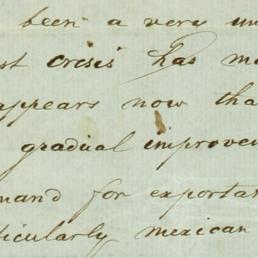 been a very un
st crisis has m
appears now tha
gradual improve
mand for exporta
ticularly mexican